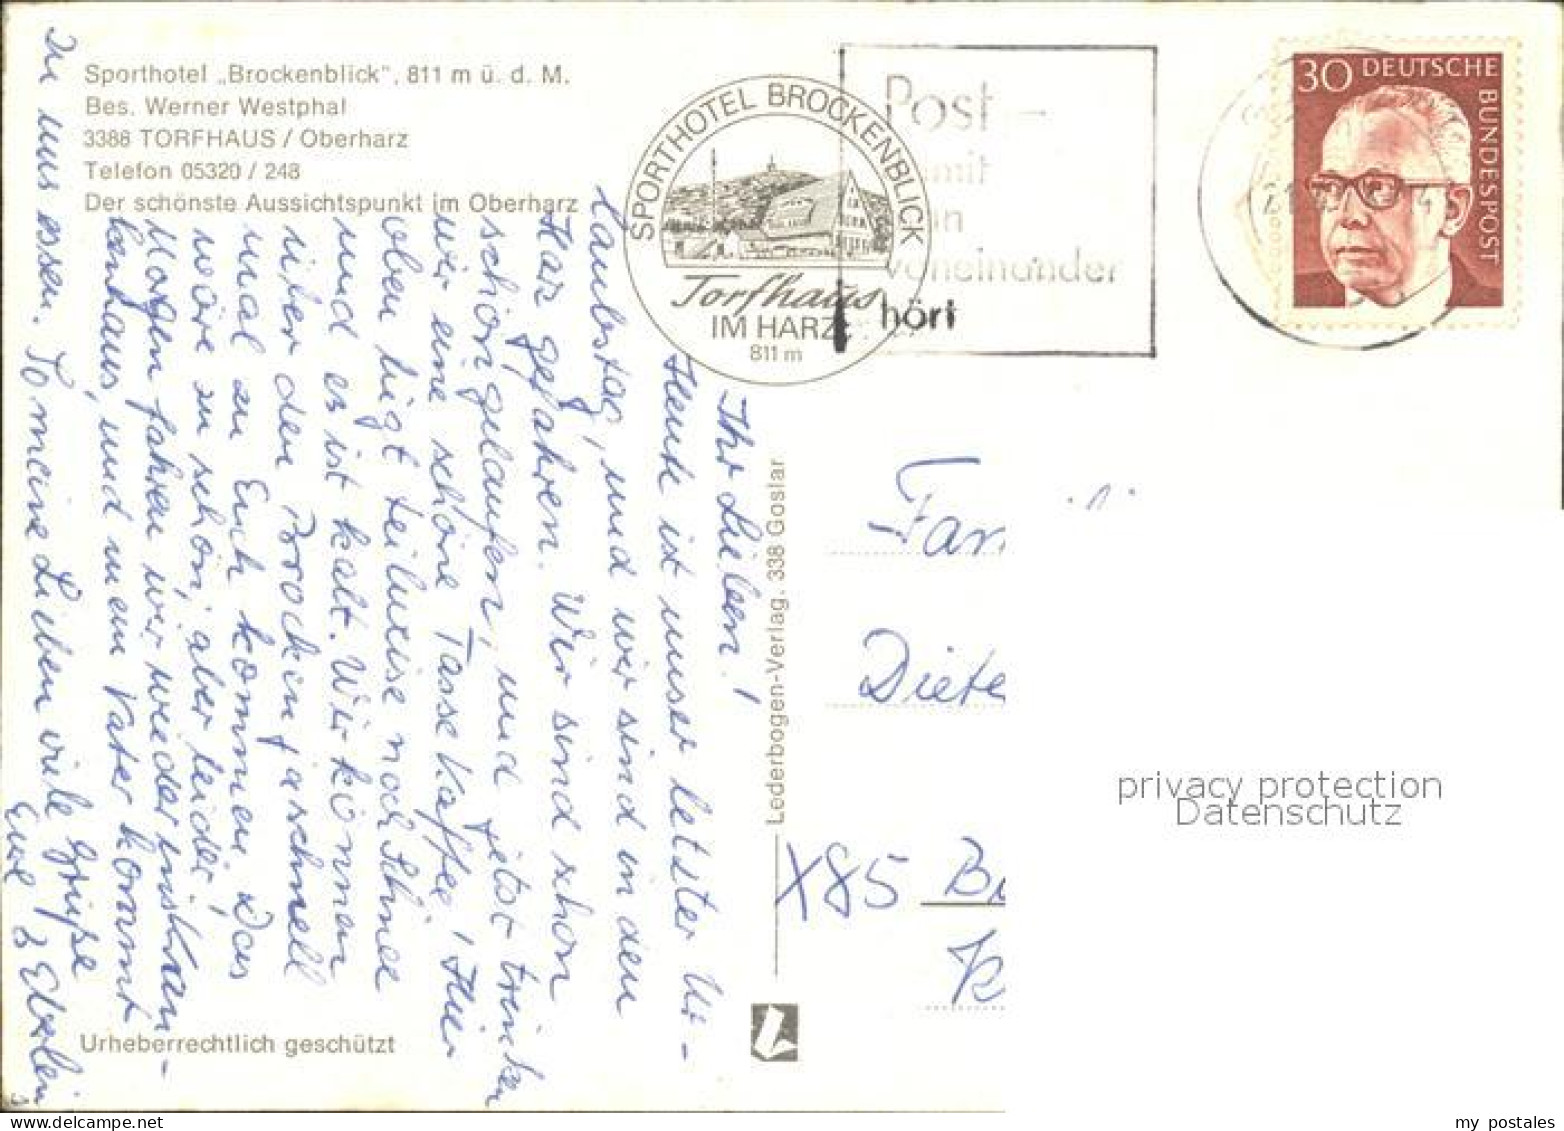 Sporthotel „Brockenblick", 811 m ü. d. M.
Bes. Werner Westphal
3388 TORFHAUS / Oberharz
Telefon 05320 / 248
Der schönste Aussichtspunkt im Oberharz
SPORTHOTEL BROCKENBLICK
Torfhaus
IM HARZ
811 m
Post -
damit
man
voneinander
hört
30 DEUTSCHE
BUNDESPOST
Ihr Lieben!
Heute ist unser letzter Ur-
laubstag, und wir sind in den
Harz gefahren. Wir sind schon
schön gelaufen, und jetzt trinken
wir eine schöne Tasse Kaffee, Hier
oben liegt teilweise noch Schnee
und es ist kalt. Wir können
über den Brocken ja schnell
mal zu Euch kommen. Das
wäre zu schön, aber leider,
Morgen fahren wir wieder ins Kran-
kenhaus, und mein Vater kommt
zu uns essen. So meine Lieben viele Grüße
Eure
Lederbogen-Verlag. 338 Goslar
Fam
Diete
X85
Urheberrechtlich geschützt
privacy protection
Datenschutz
my postales